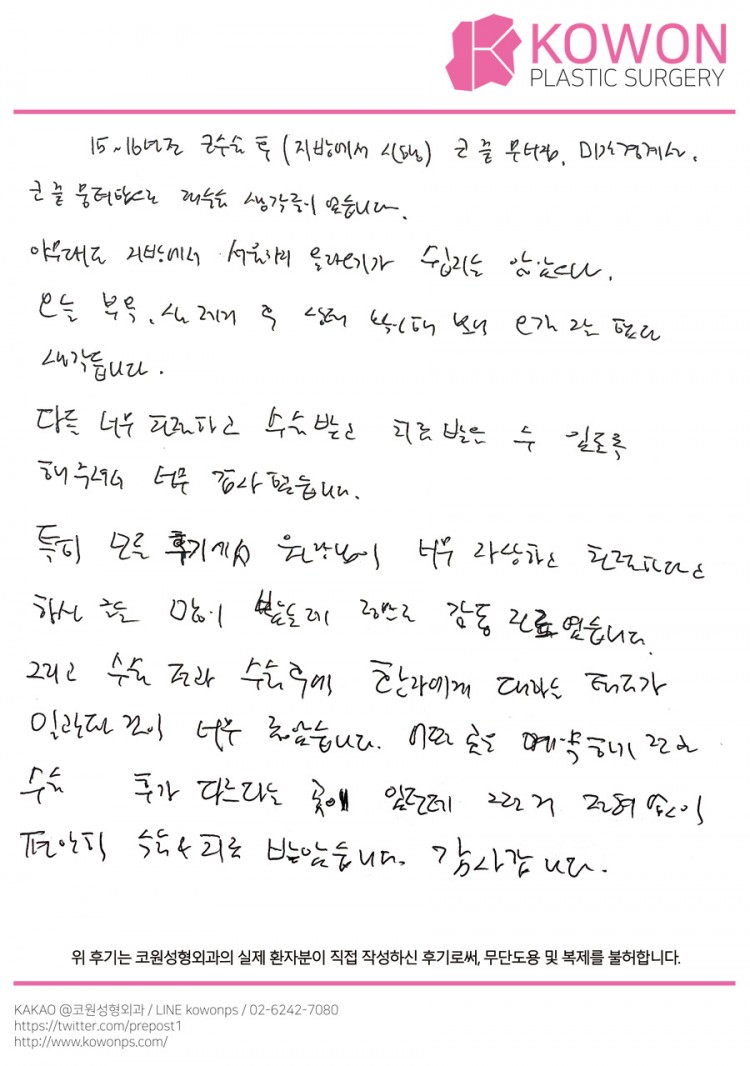 KOWON
PLASTIC SURGERY
15~16년전 코수술 후 (지방에서 시행) 코 끝 뭉터짐, 미간경계선,
코 끝 뭉텅함으로 재수술 생각중이 었습니다.
아무래도 지방에서 서울까지 올라오기가 쉽지는 않습니다.
오늘 부목, 실 제거 후 상태 보니 오길 잘 했다
생각듭니다.
다들 너무 친절하고 수술 받고 치료 받을 수 있도록
해주셔서 너무 감사 했습니다.
특히 모든 후기에서 원장님이 너무 자상하고 친절하다고
하신 글들 많이 봤는데 정말로 감동 그 자체였습니다.
그리고 수술 전과 수술후에 환자에게 대하는 태도가
일관된 것이 너무 좋았습니다. 어떤 곳은 예약하기 전과
수술 후가 다르다는 곳이 있던데 그런거 전혀 없이
편안히 수술 & 치료 받았습니다. 감사합니다.
위 후기는 코원성형외과의 실제 환자분이 직접 작성하신 후기로써, 무단도용 및 복제를 불허합니다.
KAKAO @코원성형외과 / LINE kowonps / 02-6242-7080
https://twitter.com/prepost1
http://www.kowonps.com/